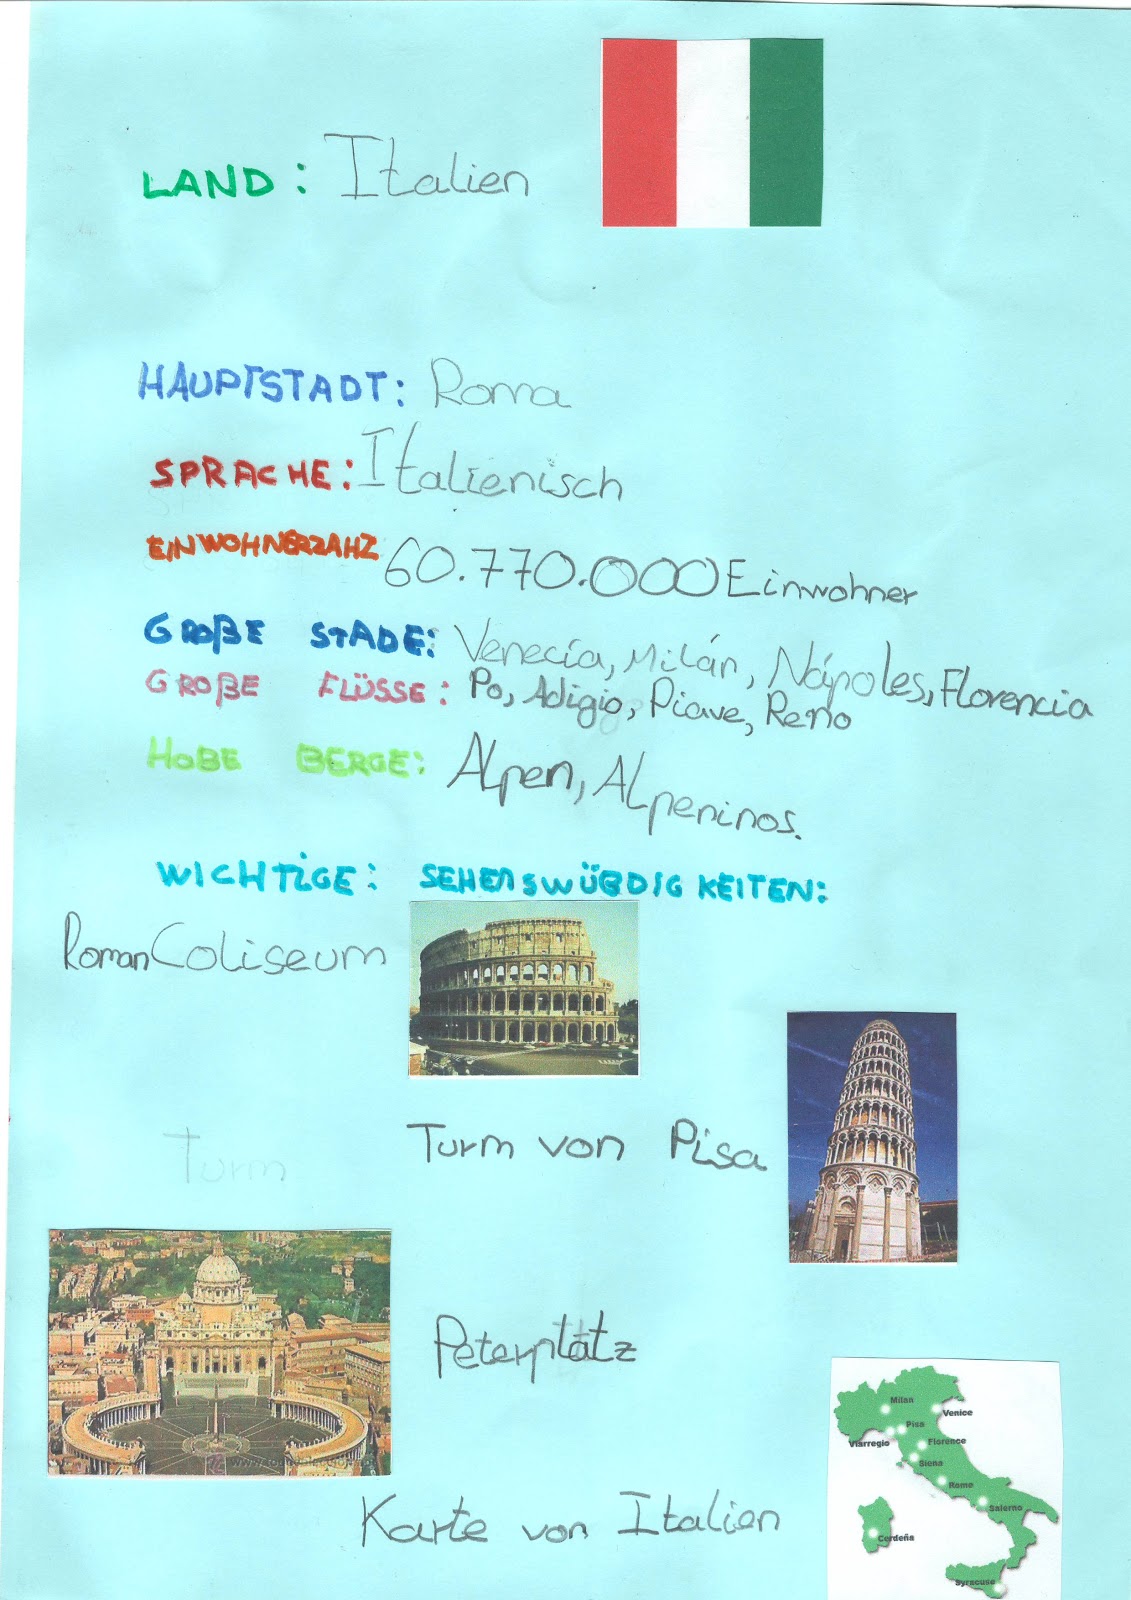 LAND: Italien
HAUPTSTADT: Roma
SPRACHE: Italienisch
EINWOHNERZAHZ 60.770.000 Einwohner
GROßE STADE: Venecía, Milán, Nápoles, Florencia
GROßE FLÜSSE: Po, Adigio, Piave, Reno
HOBE BERGE: Alpen, Alpeninos.
WICHTIGE: SEHENSWÜBDIGKEITEN:
Roman Coliseum
Turm von Pisa
Turm
Peterplatz
Karte von Italien
Milan
Venice
Pisa
Viarregio
Florence
Siena
Rome
Salerno
Cerdeña
Syracuse